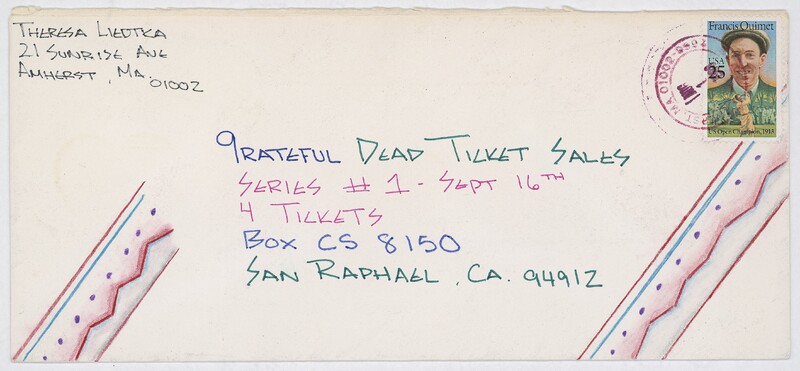 THERESA LIEDTKA
21 SUNRISE AVE
AMHERST, MA.
01002
Francis Ouimet
USA
25
US Open Champion, 1913
MA 01002-9998
GRATEFUL DEAD TICKET SALES
SERIES # 1 - SEPT 16TH
4 TICKETS
BOX CS 8150
SAN RAPHAEL, CA. 94912